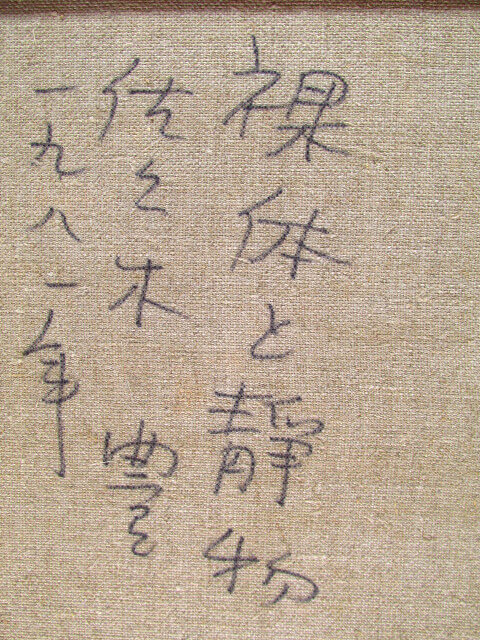 裸体と静物
佐々木 豊
一九八一年